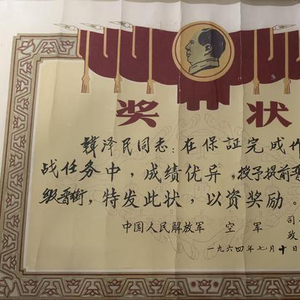 奖状
韩泽民同志：在保証完成作
战任务中，成绩优异，授予提前晋
级晋衔，特发此状，以资奖励。
中国人民解放军 空军 司
政
一九六四年七月十日